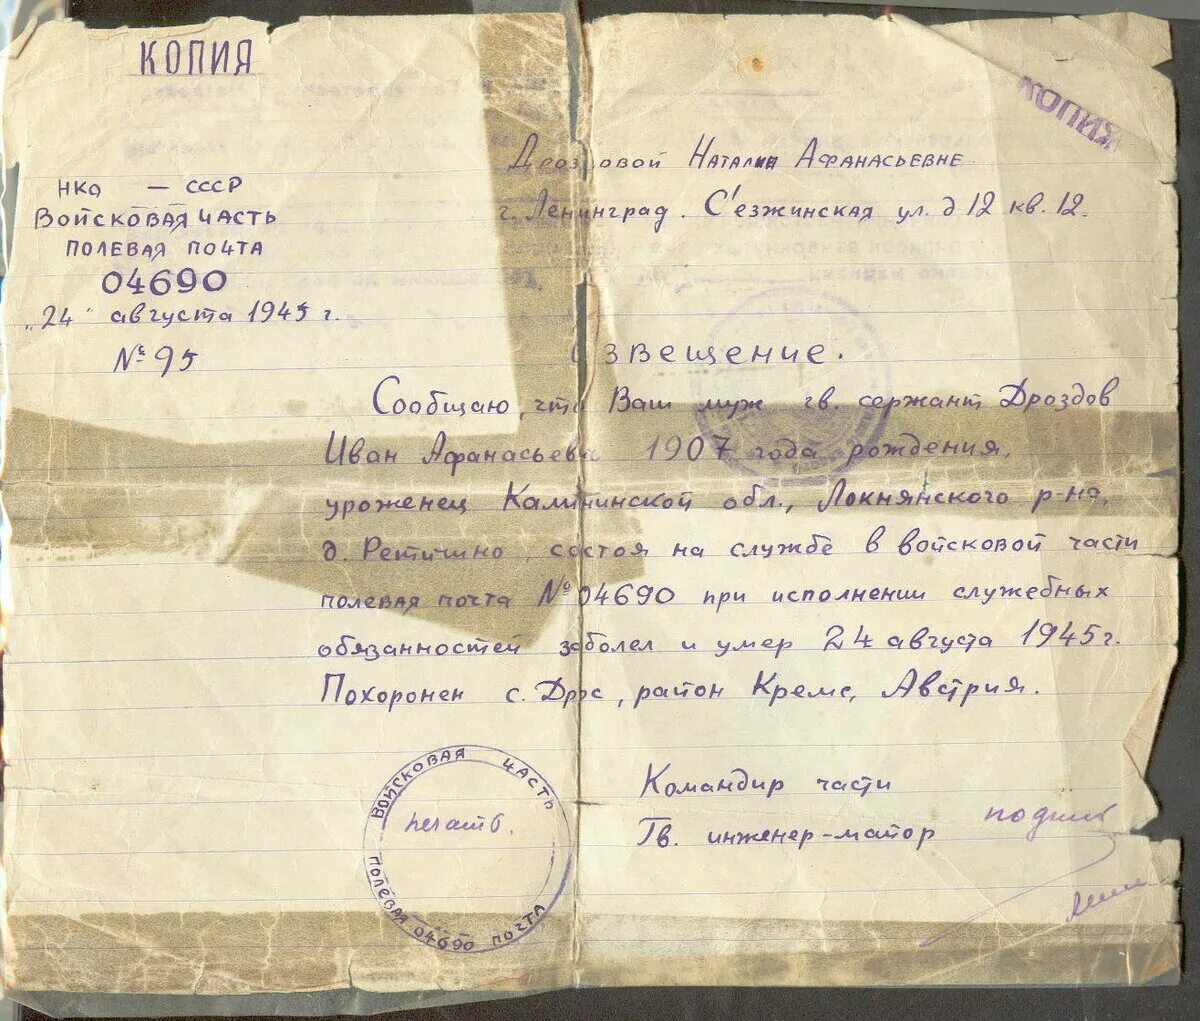 КОПИЯ
КОПИЯ
НКО — СССР
ВОЙСКОВАЯ ЧАСТЬ
ПОЛЕВАЯ ПОЧТА
04690
"24" августа 1945 г.
№ 95
Дроздовой Наталии Афанасьевне
г. Ленинград. С'езжинская ул. д 12 кв. 12.
Извещение.
Сообщаю, что Ваш муж гв. сержант Дроздов
Иван Афанасьевич 1907 года рождения,
уроженец Калининской обл., Локнянского р-на,
д. Ретишно, состоя на службе в войсковой части
полевая почта № 04690 при исполнении служебных
обязанностей заболел и умер 24 августа 1945 г.
Похоронен с. Дрос, район Кремс, Австрия.
Командир части
Гв. инженер-майор
подпись
ВОЙСКОВАЯ ЧАСТЬ
печать.
ПОЛЕВАЯ 04690 ПОЧТА